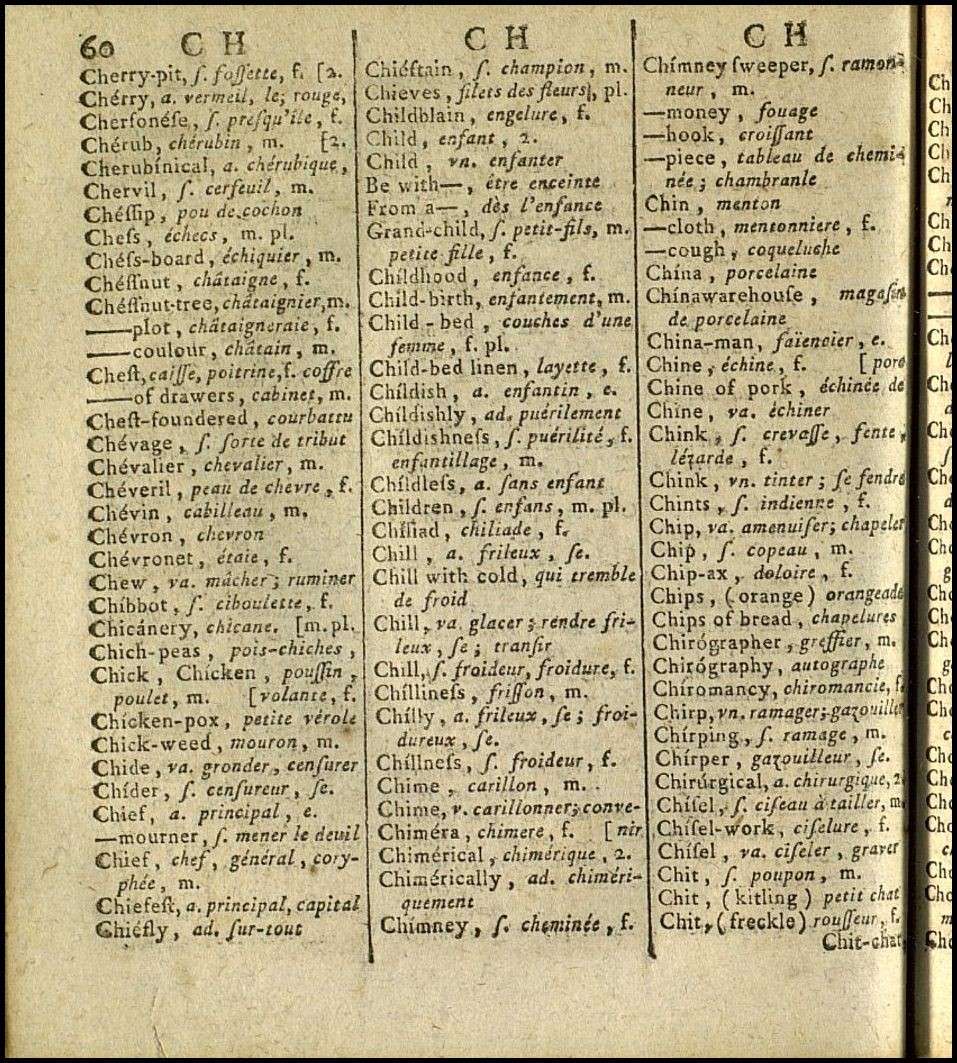 60 C H
Cherry-pit, ſ. foſſette, f. [2.
Chérry, a. vermeil, le; rouge,
Cherſonéſe, ſ. preſqu'ile, f.
Chérub, chérubin, m. [2.
Cherubínical, a. chérubique,
Chervil, ſ. cerfeuil, m.
Chéſſip, pou de cochon
Cheſs, échecs, m. pl.
Chéſs-board, échiquier, m.
Chéſſnut, châtaigne, f.
Chéſſnut-tree, châtaignier, m.
——plot, châtaigneraie, f.
——coulour, châtain, m.
Cheſt, caiſſe, poitrine, f. coffre
——of drawers, cabinet, m.
Cheſt-foundered, courbattu
Chévage, ſ. ſorte de tribut
Chévalier, chevalier, m.
Chéveril, peau de chevre, f.
Chévin, cabilleau, m.
Chévron, chevron
Chévronet, étaie, f.
Chew, va. mâcher; ruminer
Chíbbot, ſ. ciboulette, f.
Chicánery, chicane. [m. pl.
Chich-peas, pois-chiches,
Chick, Chícken, pouſſin,
poulet, m. [volante, f.
Chícken-pox, petite vérole
Chick-weed, mouron, m.
Chide, va. gronder, cenſurer
Chíder, ſ. cenſureur, ſe.
Chief, a. principal, e.
—mourner, ſ. mener le deuil
Chief, chef, général, cory-
phée, m.
Chiefeſt, a. principal, capital
Chiéfly, ad. ſur-tout
C H
Chiéftain, ſ. champion, m.
Chieves, filets des fleurs, pl.
Childblain, engelure, f.
Child, enfant, 2.
Child, vn. enfanter
Be with—, être enceinte
From a—, dès l'enfance
Grand-child, ſ. petit-fils, m.
petite fille, f.
Chíldhood, enfance, f.
Child-birth, enfantement, m.
Child-bed, couches d'une
femme, f. pl.
Child-bed linen, layette, f.
Chíldish, a. enfantin, e.
Chíldishly, ad. puérilement
Chíldishneſs, ſ. puérilité, f.
enfantillage, m.
Chíldleſs, a. ſans enfant
Children, ſ. enfans, m. pl.
Chíliad, chiliade, f.
Chill, a. frileux, ſe.
Chill with cold, qui tremble
de froid
Chill, va. glacer; rendre fri-
leux, ſe; tranſir
Chill, ſ. froideur, froidure, f.
Chíllineſs, friſſon, m.
Chílly, a. frileux, ſe; froi-
dureux, ſe.
Chíllneſs, ſ. froideur, f.
Chime, carillon, m.
Chime, v. carillonner; conve-
Chiméra, chimere, f. [nir
Chimérical, chimérique, 2.
Chimérically, ad. chiméri-
quement
Chímney, ſ. cheminée, f.
C H
Chímney ſweeper, ſ. ramon-
neur, m.
—money, fouage
—hook, croiſſant
—piece, tableau de chemi-
née; chambranle
Chin, menton
—cloth, mentonniere, f.
—cough, coqueluche
Chína, porcelaine
Chínawarehouſe, magaſin
de porcelaine
China-man, faïencier, e.
Chine, échine, f. [porc
Chine of pork, échinée de
Chine, va. échiner
Chink, ſ. crevaſſe, fente,
lézarde, f.
Chink, vn. tinter; ſe fendre
Chints, ſ. indienne, f.
Chip, va. amenuiſer; chapeler
Chip, ſ. copeau, m.
Chip-ax, doloire, f.
Chips, (orange) orangeade
Chips of bread, chapelures
Chirógrapher, greffier, m.
Chirógraphy, autographe
Chíromancy, chiromancie, f.
Chirp, vn. ramager; gazouiller
Chírping, ſ. ramage, m.
Chírper, gazouilleur, ſe.
Chirúrgical, a. chirurgique, 2
Chíſel, ſ. ciſeau à tailler, m
Chíſel-work, ciſelure, f.
Chíſel, va. ciſeler, graver
Chit, ſ. poupon, m.
Chit, (kitling) petit chat
Chit, (freckle) rouſſeur, f.
Chit-chat